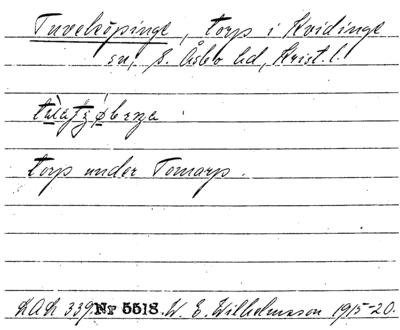 Tuveköpinge, torp i Kvidinge
sn, S. Åsbo hd, Krist. l.
torp under Tomarp.
DAL 339 Nr 5518. W. E. Wilhelmsson 1915-20.